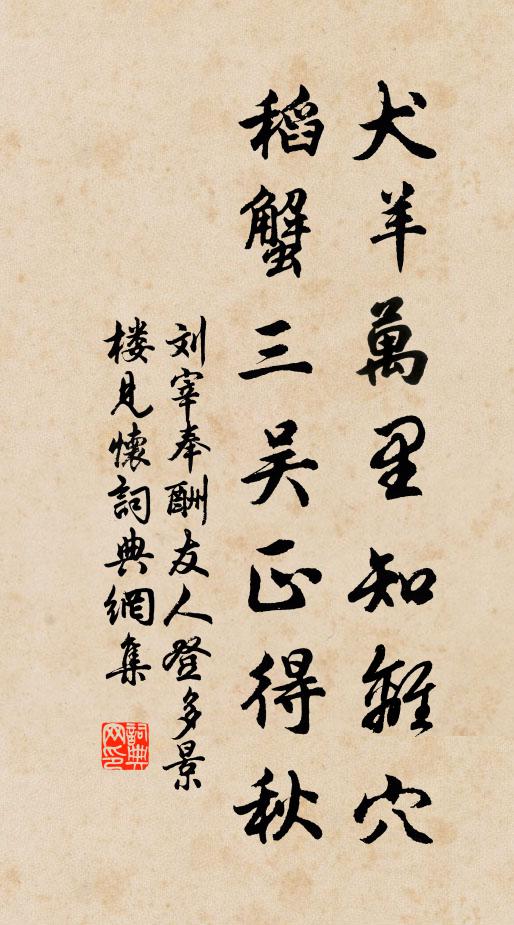 犬羊萬里知離穴
稻蟹三吴正得秋
刘宰奉酬友人登多景
楼見懷詞典網集
詞典
网印